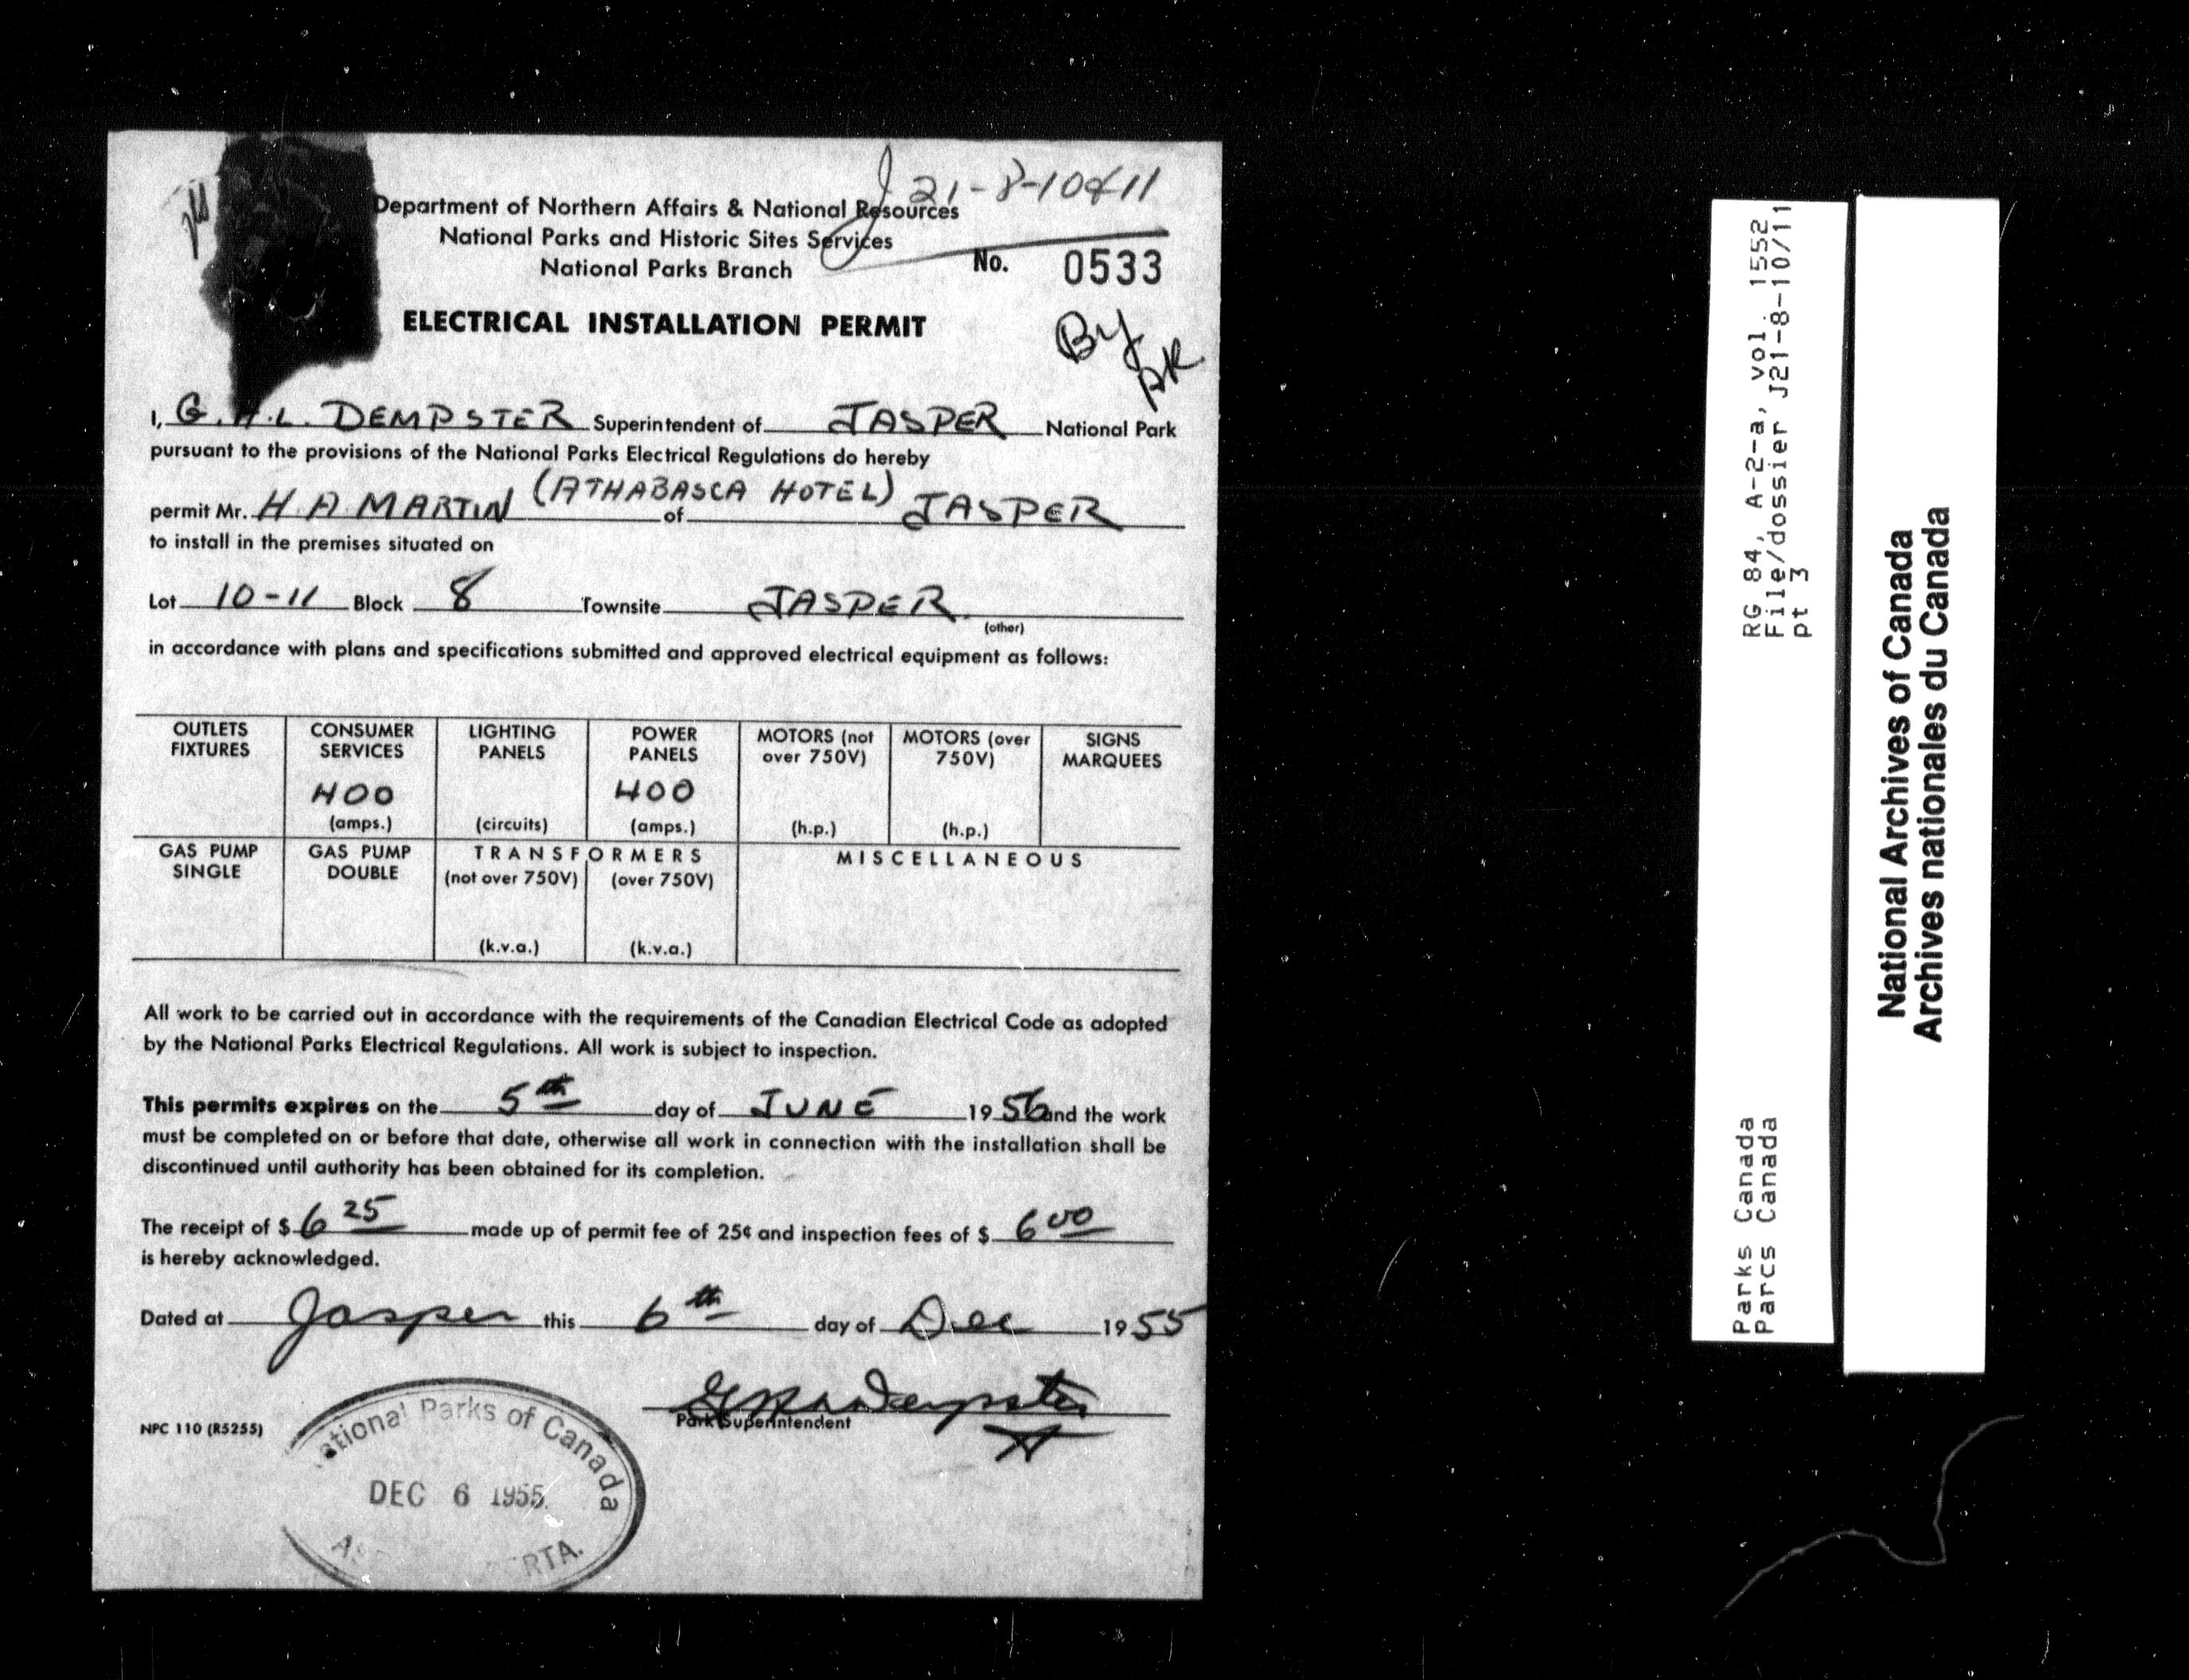 J 21-8-10&11
Department of Northern Affairs & National Resources
National Parks and Historic Sites Services
National Parks Branch
No. 0533
ELECTRICAL INSTALLATION PERMIT
By
I, G.H.L. DEMPSTER Superintendent of JASPER National Park
pursuant to the provisions of the National Parks Electrical Regulations do hereby
permit Mr. H A MARTIN (ATHABASCA HOTEL) of JASPER
to install in the premises situated on
Lot 10-11 Block 8 Townsite JASPER
(other)
in accordance with plans and specifications submitted and approved electrical equipment as follows:
OUTLETS FIXTURES
CONSUMER SERVICES 400 (amps.)
LIGHTING PANELS (circuits)
POWER PANELS 400 (amps.)
MOTORS (not over 750V) (h.p.)
MOTORS (over 750V) (h.p.)
SIGNS MARQUEES
GAS PUMP SINGLE
GAS PUMP DOUBLE
TRANSFORMERS
(not over 750V) (k.v.a.)
(over 750V) (k.v.a.)
MISCELLANEOUS
All work to be carried out in accordance with the requirements of the Canadian Electrical Code as adopted
by the National Parks Electrical Regulations. All work is subject to inspection.
This permits expires on the 5th day of JUNE 1956 and the work
must be completed on or before that date, otherwise all work in connection with the installation shall be
discontinued until authority has been obtained for its completion.
The receipt of $ 6 25 made up of permit fee of 25¢ and inspection fees of $ 6 00
is hereby acknowledged.
Dated at Jasper this 6th day of Dec 1955
Park Superintendent
NPC 110 (R5255)
ational Parks of Canada
DEC 6 1955
RTA.
RG 84, A-2-a, vol. 1552
File/dossier J21-8-10/11
pt 3
Parks Canada
Parcs Canada
National Archives of Canada
Archives nationales du Canada